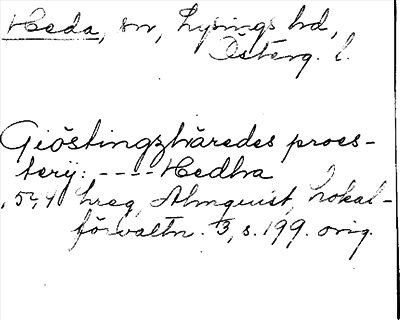 Heda, sn, Lysings hd,
Österg. l.
Giöstingzhäredes proes-
terij: ---- Hedha
1541 hreg, Almquist, Lokal-
förvaltn. 3, s. 199. orig.